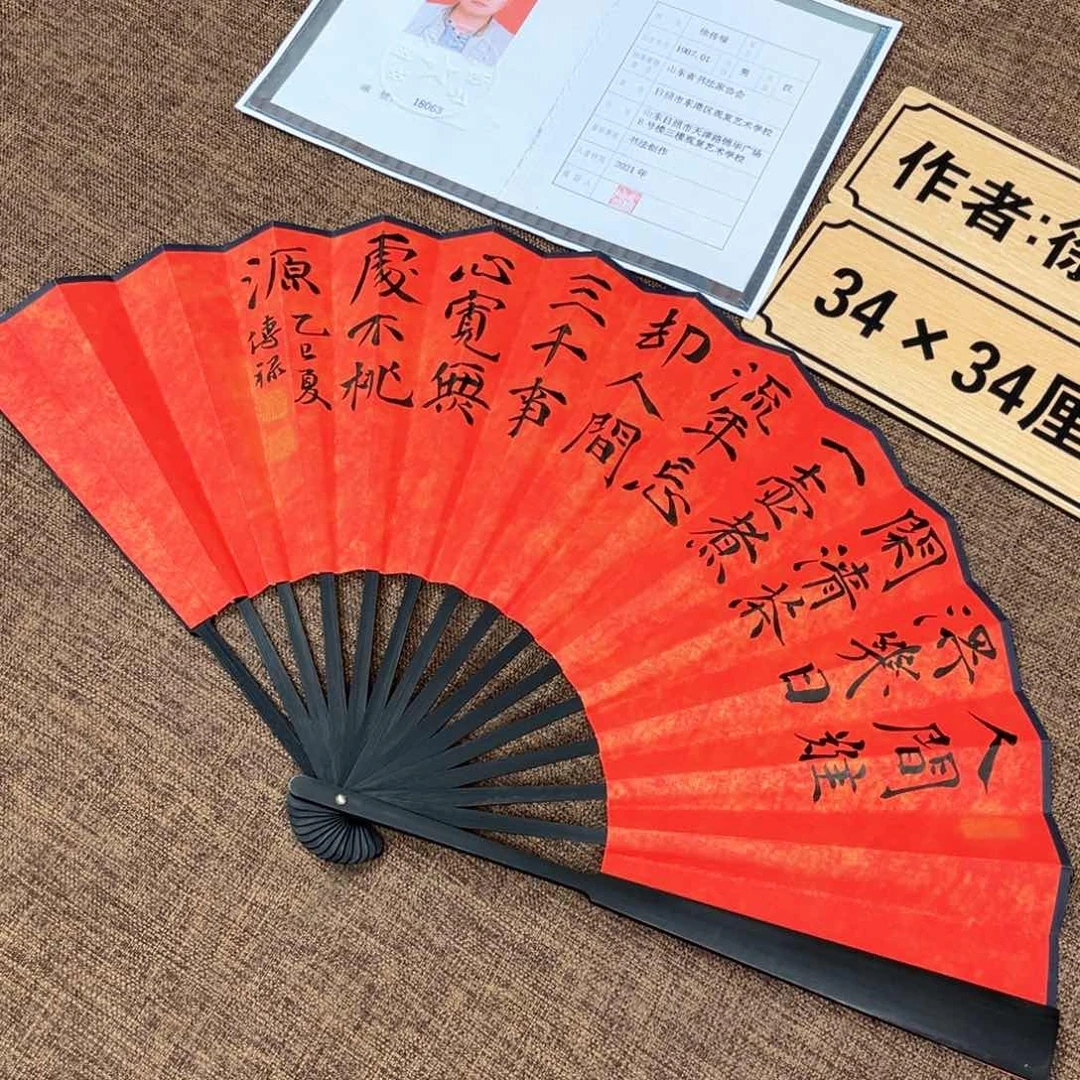 人間雖
樂日
閑清茶
一壺煮
流年忘
却人間
三千事
心寬無
處不桃
源
乙巳夏
傳祿
18063
山东省书法家协会
日照市东港区观复艺术学校
山东日照市天津路德华广场
B号楼三楼观复艺术学校
书法创作
2021年
作者:徐
34×34厘